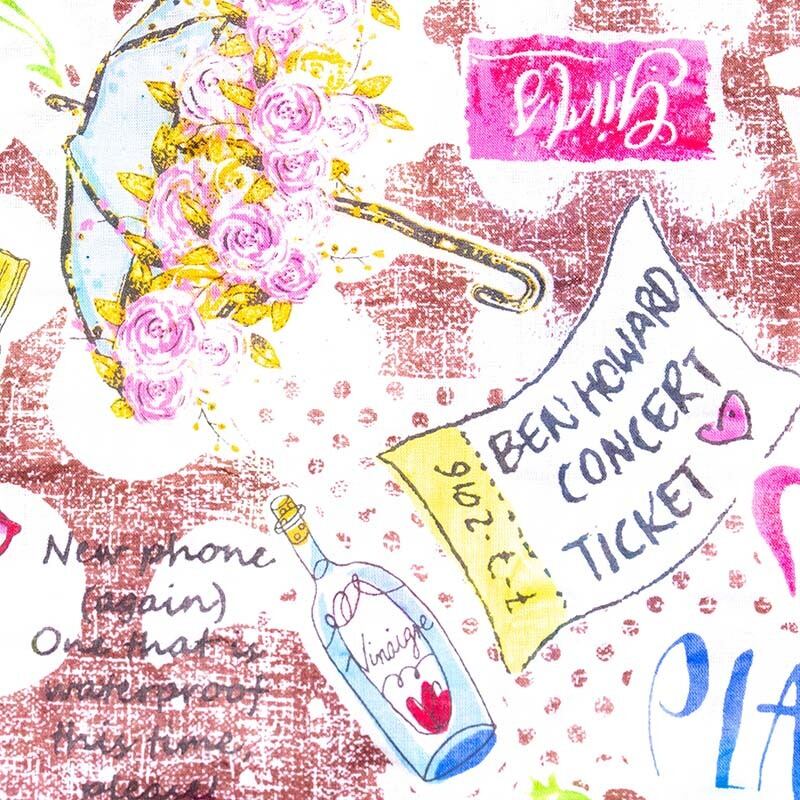 Girls
BEN HOWARD
CONCERT
TICKET
New phone
(again)
One that is
waterproof
this time,
please!
Vinaigre
PLA